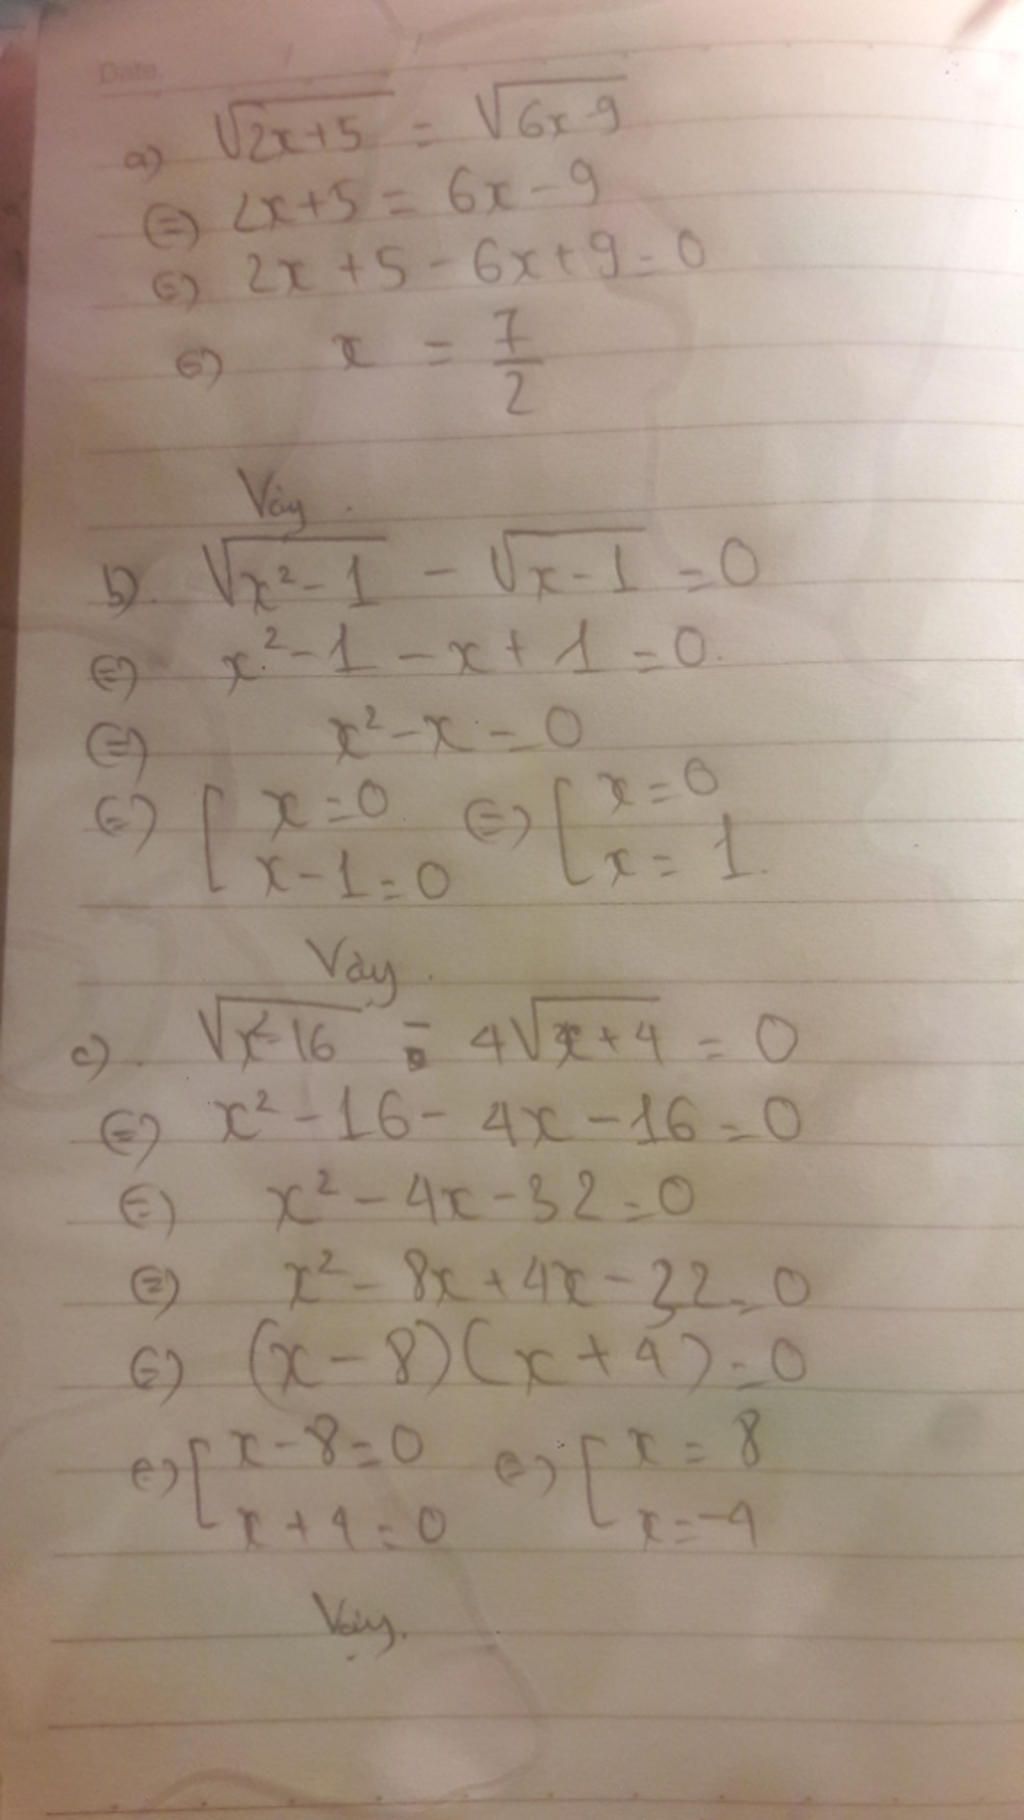 Date.
a) √(2x+5) = √(6x-9)
⇔ 2x+5 = 6x-9
⇔ 2x+5-6x+9=0
⇔ x = 7/2
Vậy.
b). √(x²-1) - √(x-1) = 0
⇔ x²-1-x+1=0.
⇔ x²-x=0
⇔ [x=0 ⇔ [x=0
x-1=0 x=1.
Vậy.
c). √(x²-16) - 4√(x+4) = 0
⇔ x²-16-4x-16=0
⇔ x²-4x-32=0
⇔ x²-8x+4x-32=0
⇔ (x-8)(x+4)=0
⇔ [x-8=0 ⇔ [x=8
x+4=0 x=-4
Vậy.